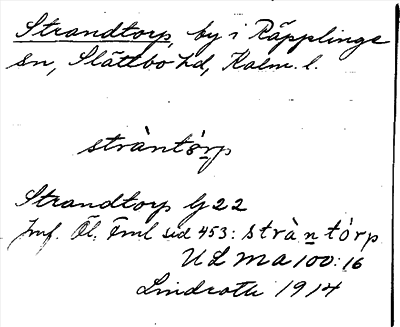 Strandtorp, by i Räpplinge
sn, Slättbo hd, Kalm. l.
stràntór̲p
Strandtorp G 22
Jmf. Öl. Fml sid 453: stràn̲tórp
ULMA 100:16
Lindroth 1914